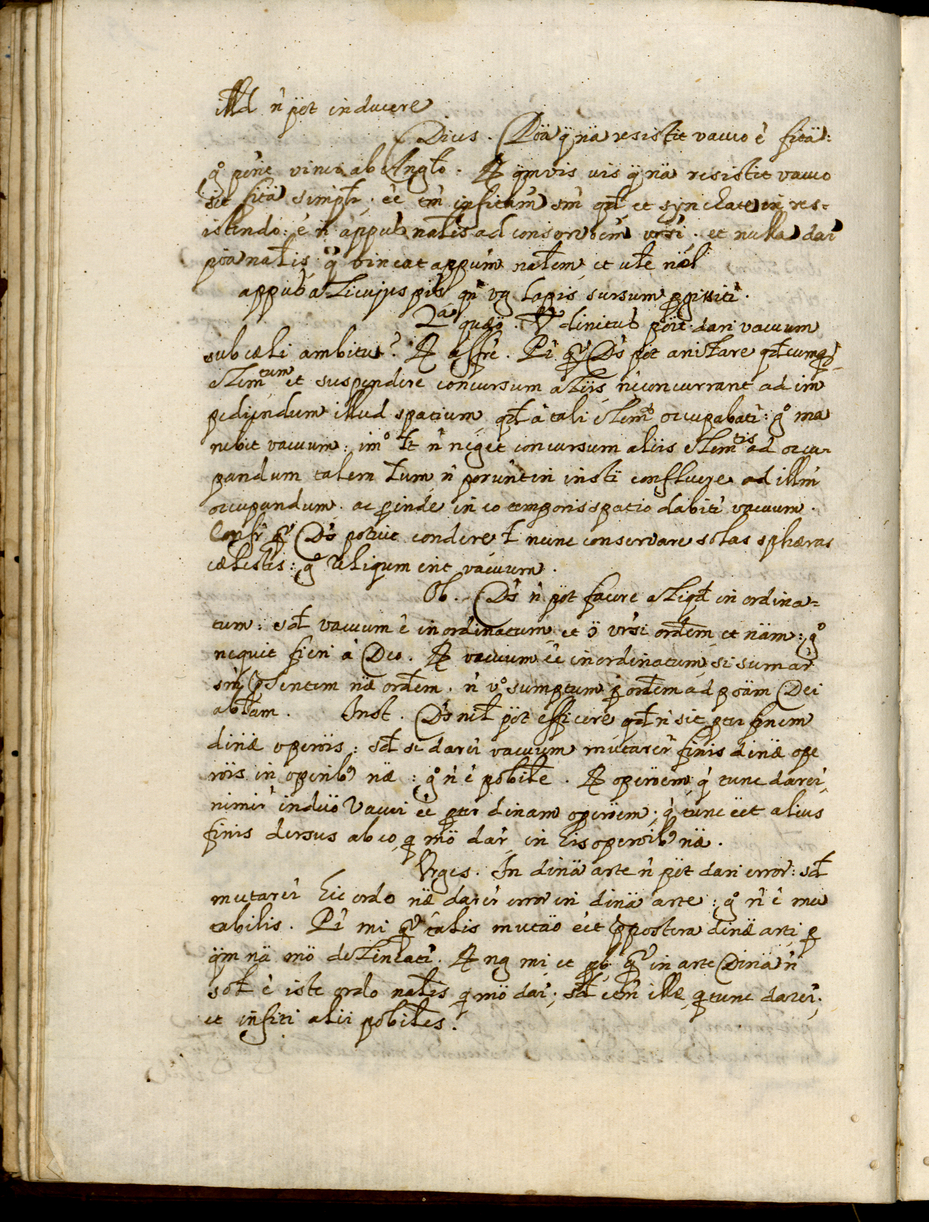 illd ñ põt inducere
Dices. Põa q̃ nã resistit vacuo ẽ fitã:
gº põne vinci ab Anglo. R̃ q̃mvis vis q̃ nã resistit vacuo
sit fitã simplr. eẽ tm̃ infitam sm̃ qd et syncate in res-
istendo: ẽ ñ appus natlis ad conserõem vrsi. et nulla dar
põa natlis q̃ vincat appum natlem et utle
appus alicujus pis q̃ vg lapis sursum
2ª quão. dinitus põit dari vacuum
sub cæli ambitu? R̃ affr̃e. Pr̃ qª Ds põt anilare qdcumq
elemtum et suspendere concursum aliis ñ concurrant ad im
pediendum illud spatium qd à tali elemto occupabatr: gº ma
nebit vacuum: imº lt ñ neget concursum aliis elemtis ad occu-
pandum talem lum ñ poruntin insti confluere ad illm
occupandum. ac perinde in eo temporis spatio dabitr vacuum.
Confr qª Ds potuit condere l nunc conservare solas sphæras
cælestes: gº reliqum erit vacuum.
Ob. Ds ñ põt facere aliqd inordina-
tum: sed vacuum ẽ inordinatum et õ vrsi ordem et nãm: gº
nequit fieri à Deo. R̃ vacuum eẽ inordinatum si sumar
sm̃ entem næ ordem. ñ vº sumptum p ordem ad põam Dei
ablam. Inst. Ds nil põt efficere qd ñ sit pter finem
dinæ operõis: sd si darer vacuum mutarer finis dinæ ope
rõis in operib9 næ: gº ñ ẽ poble. R̃ operõem q̃ tunc darer
nimir induõ vacui eẽ pter dinam operõem; q̃ tunc eet alius
finis dersus ab eo q mõ dar in his operõib9 næ.
Urges. In dinã arte ñ põt dari error: sd
mutarer hic ordo næ darer error in dinã arte: gº ñ ẽ mu
tabilis. Pr̃ mi qª talis mutão eet opposita dinæ arti p
q̃m nã mõ delineatr. R̃ ng mi et pb qª in arte Dinã ñ
sol ẽ iste ordo natlis q mõ dar; sd etm illæ q tunc darer;
et infiti alii pobiles.